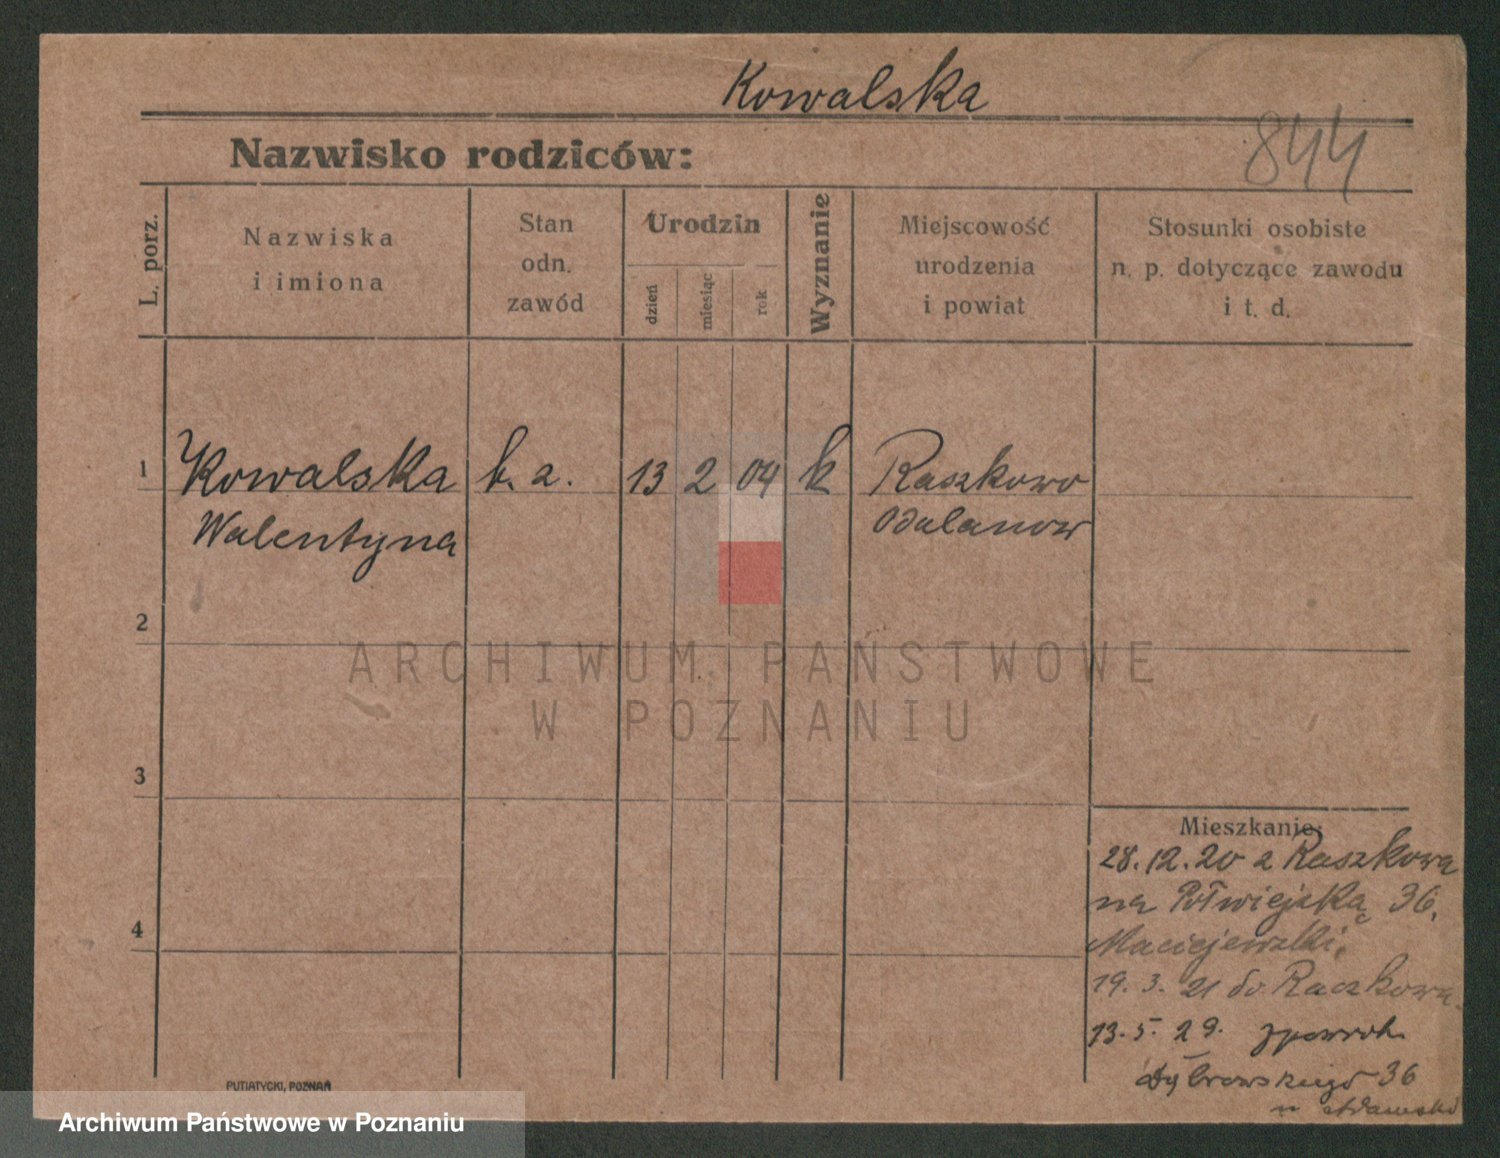 Kowalska
844
Nazwisko rodziców:
L. porz.
Nazwiska
i imiona
Stan
odn.
zawód
Urodzin
dzień
miesiąc
rok
Wyznanie
Miejscowość
urodzenia
i powiat
Stosunki osobiste
n. p. dotyczące zawodu
i t. d.
1 Kowalska b. a. 13 2 04 k Raszkowo
Walentyna Odalanow
2
ARCHIWUM PAŃSTWOWE
W POZNANIU
3
Mieszkanie:
28.12.20 z Raszkowa
na Półwiejską 36,
Maciejewski,
4
19. 3. 21 do Raszkowa.
13.5.29.
Dąbrowskiego 36
PUTIATYCKI, POZNAŃ
Archiwum Państwowe w Poznaniu